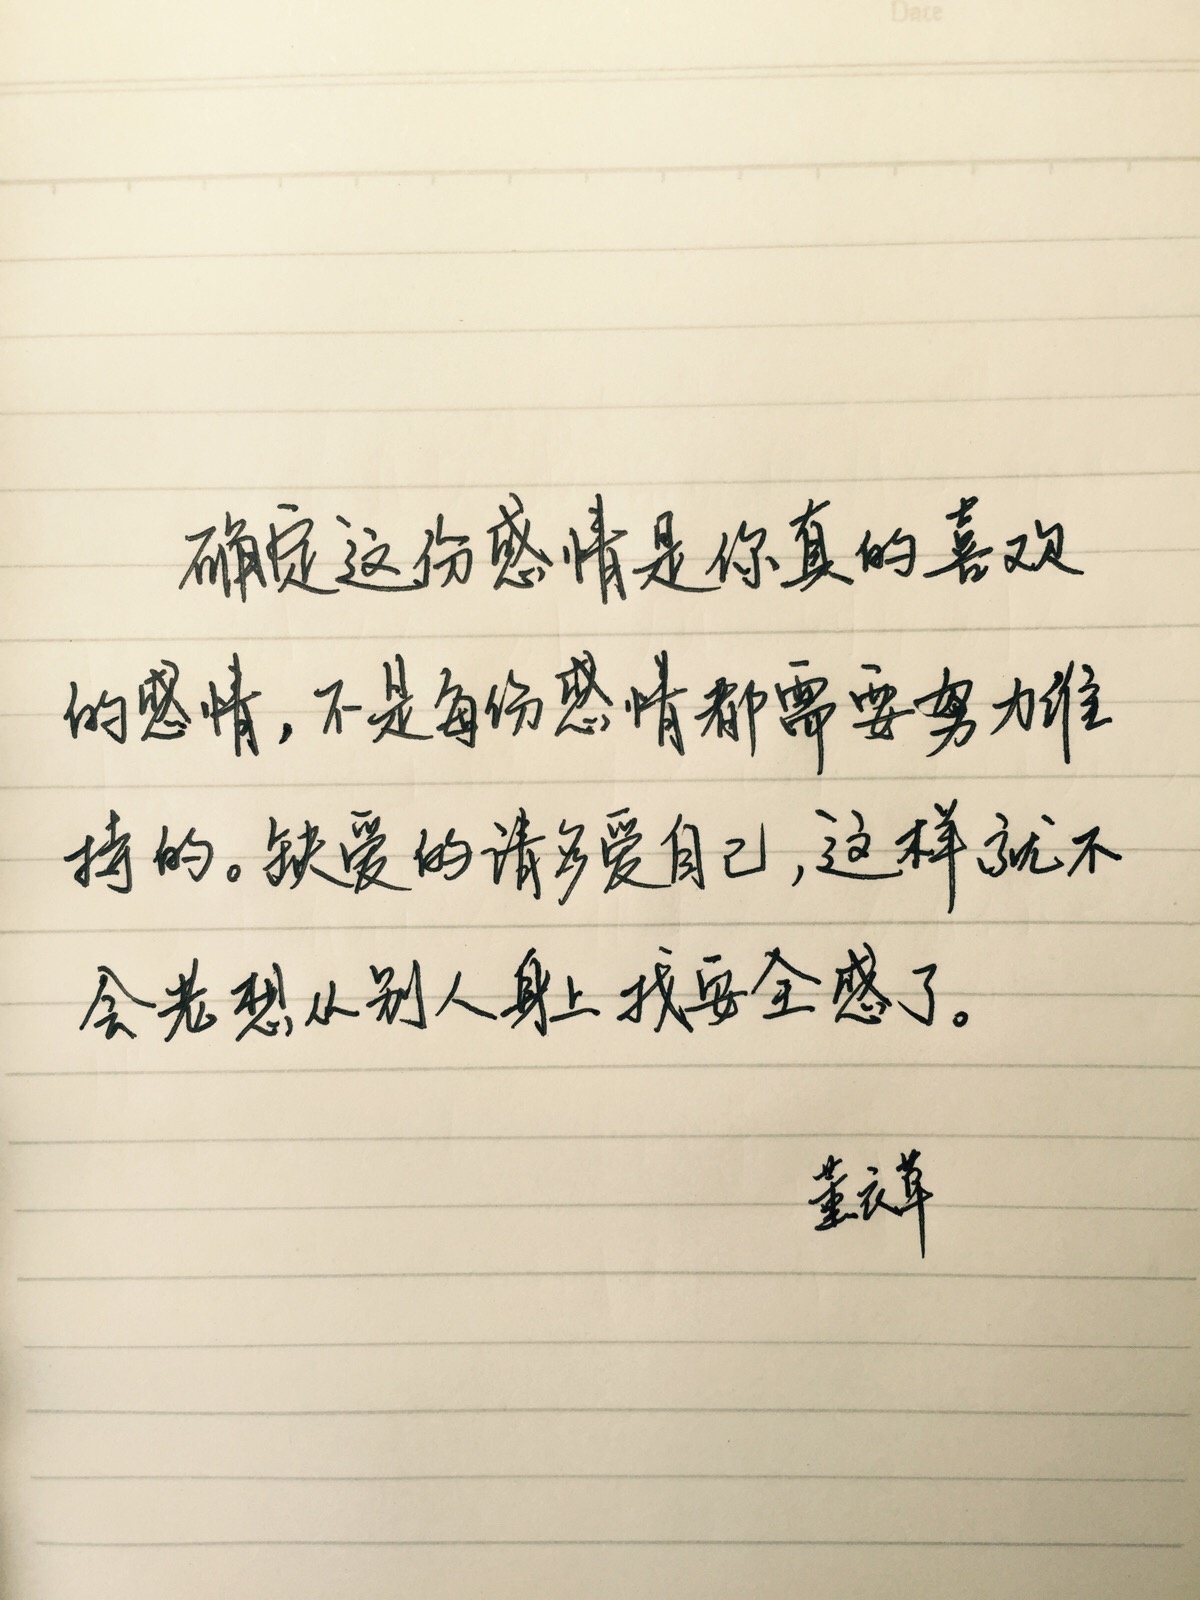 Date
确定这份感情是你真的喜欢
的感情,不是每份感情都需要努力维
持的。缺爱的请多爱自己,这样就不
会老想从别人身上找安全感了。
薰衣草